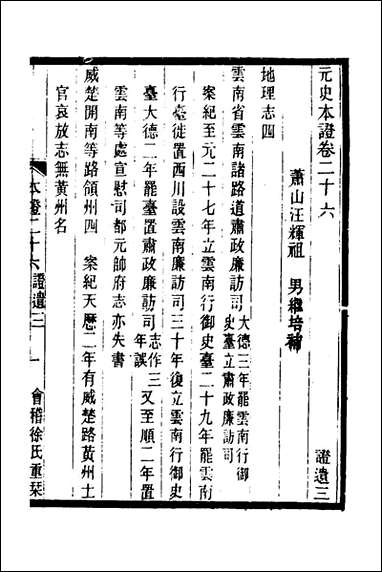 元史本證卷二十六　證遺三
蕭山汪輝祖　男繼培補
地理志四
雲南省雲南諸路道肅政廉訪司大德三年罷雲南行御史臺立肅政廉訪司
案紀至元二十七年立雲南行御史臺二十九年罷雲南
行臺徙置西川設雲南廉訪司三十年復立雲南行御史
臺大德二年罷臺置肅政廉訪司志作三年誤又至順二年置
雲南等處宣慰司都元帥府志亦失書
威楚開南等路領州四　案紀天歷二年有威楚路黃州土
官哀放志無黃州名
本證二十六證遺三　一　會稽徐氏重栞